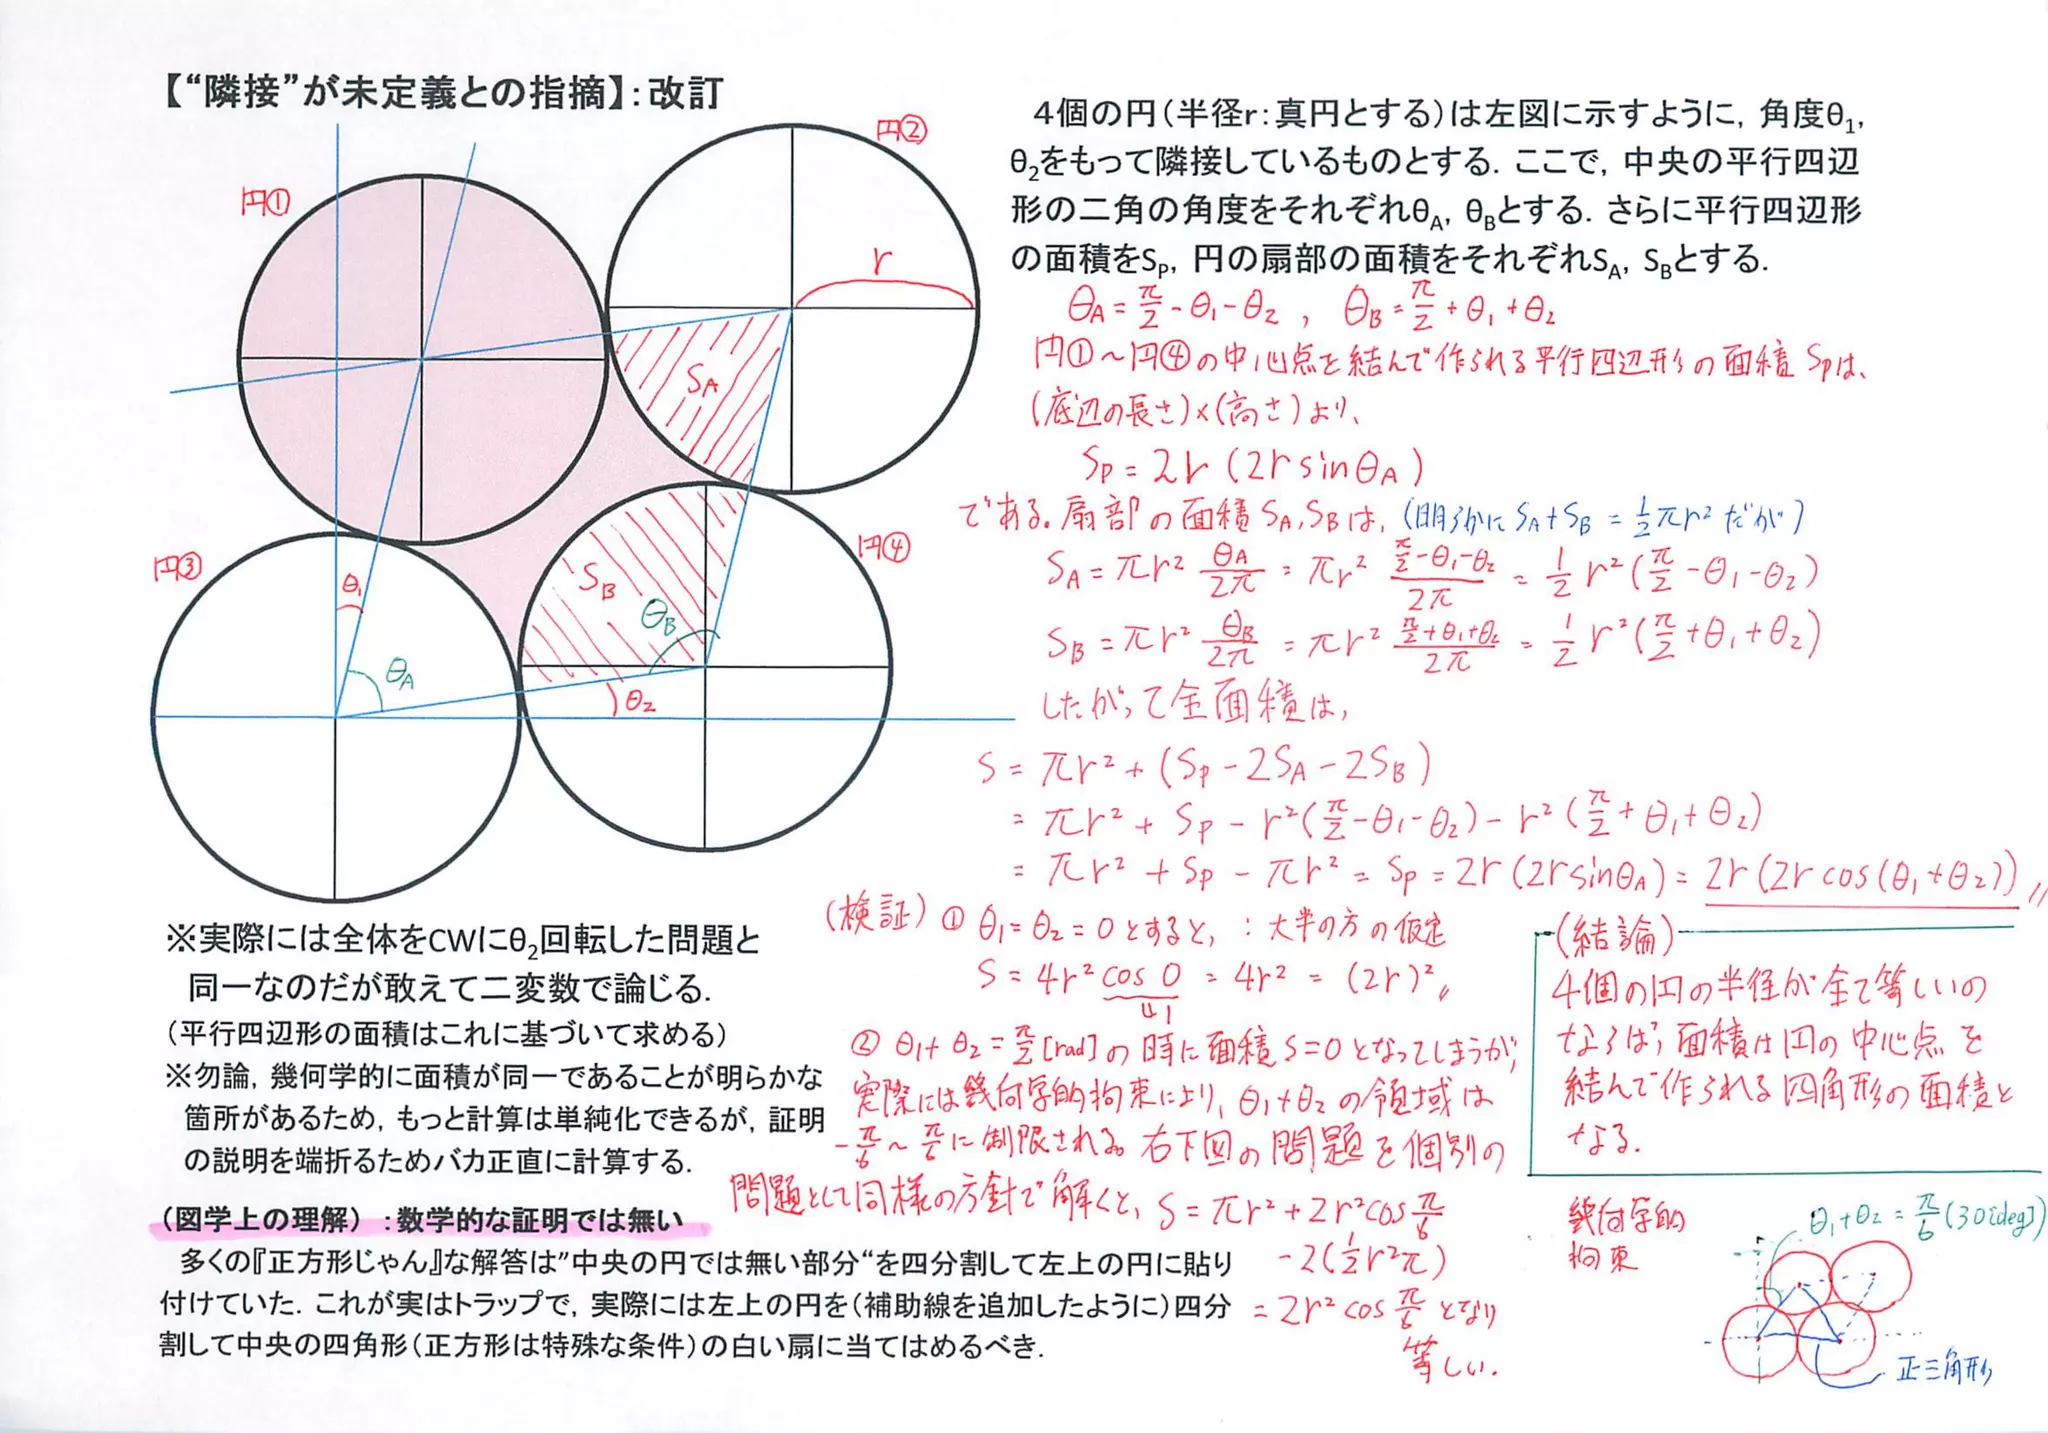 【“隣接”が未定義との指摘】：改訂
円①
円②
r
S_A
円③
円④
θ₁
θ_A
S_B
θ_B
θ₂
４個の円（半径r：真円とする）は左図に示すように，角度θ₁，
θ₂をもって隣接しているものとする．ここで，中央の平行四辺
形の二角の角度をそれぞれθ_A，θ_Bとする．さらに平行四辺形
の面積をS_P，円の扇部の面積をそれぞれS_A，S_Bとする．
θ_A = π/2 - θ₁ - θ₂ , θ_B = π/2 + θ₁ + θ₂
円①～円④の中心点を結んで作られる平行四辺形の面積Spは、
(底辺の長さ)×(高さ)より、
Sp = 2r (2r sinθ_A)
である。扇部の面積S_A, S_Bは, (明らかに S_A + S_B = 1/2 πr² だが)
S_A = πr² θ_A/2π = πr² (π/2 - θ₁ - θ₂)/2π = 1/2 r² (π/2 - θ₁ - θ₂)
S_B = πr² θ_B/2π = πr² (π/2 + θ₁ + θ₂)/2π = 1/2 r² (π/2 + θ₁ + θ₂)
したがって全面積は,
S = πr² + (Sp - 2S_A - 2S_B)
= πr² + Sp - r² (π/2 - θ₁ - θ₂) - r² (π/2 + θ₁ + θ₂)
= πr² + Sp - πr² = Sp = 2r (2r sinθ_A) = 2r (2r cos(θ₁ + θ₂)) //
(検証) ① θ₁ = θ₂ = 0 とすると, : 大半の方の仮定
S = 4r² cos 0 = 4r² = (2r)² //
1
② θ₁ + θ₂ = π/2 [rad] の時に面積 S = 0 となってしまうが,
実際には幾何学的拘束により, θ₁ + θ₂ の領域は
-π/6 ～ π/6 に制限される。右下図の問題を個別の
問題として同様の方針で解くと, S = πr² + 2r² cos π/6
- 2 (1/2 r² π)
= 2r² cos π/6 となり
等しい.
(結論)
4個の円の半径が全て等しいの
ならば, 面積は円の中心点を
結んで作られる四角形の面積と
なる.
幾何学的
拘束
θ₁ + θ₂ = π/6 (30[deg])
正三角形
※実際には全体をCWにθ₂回転した問題と
同一なのだが敢えて二変数で論じる．
（平行四辺形の面積はこれに基づいて求める）
※勿論，幾何学的に面積が同一であることが明らかな
箇所があるため，もっと計算は単純化できるが，証明
の説明を端折るためバカ正直に計算する．
（図学上の理解）：数学的な証明では無い
多くの『正方形じゃん』な解答は”中央の円では無い部分“を四分割して左上の円に貼り
付けていた．これが実はトラップで，実際には左上の円を（補助線を追加したように）四分
割して中央の四角形（正方形は特殊な条件）の白い扇に当てはめるべき．